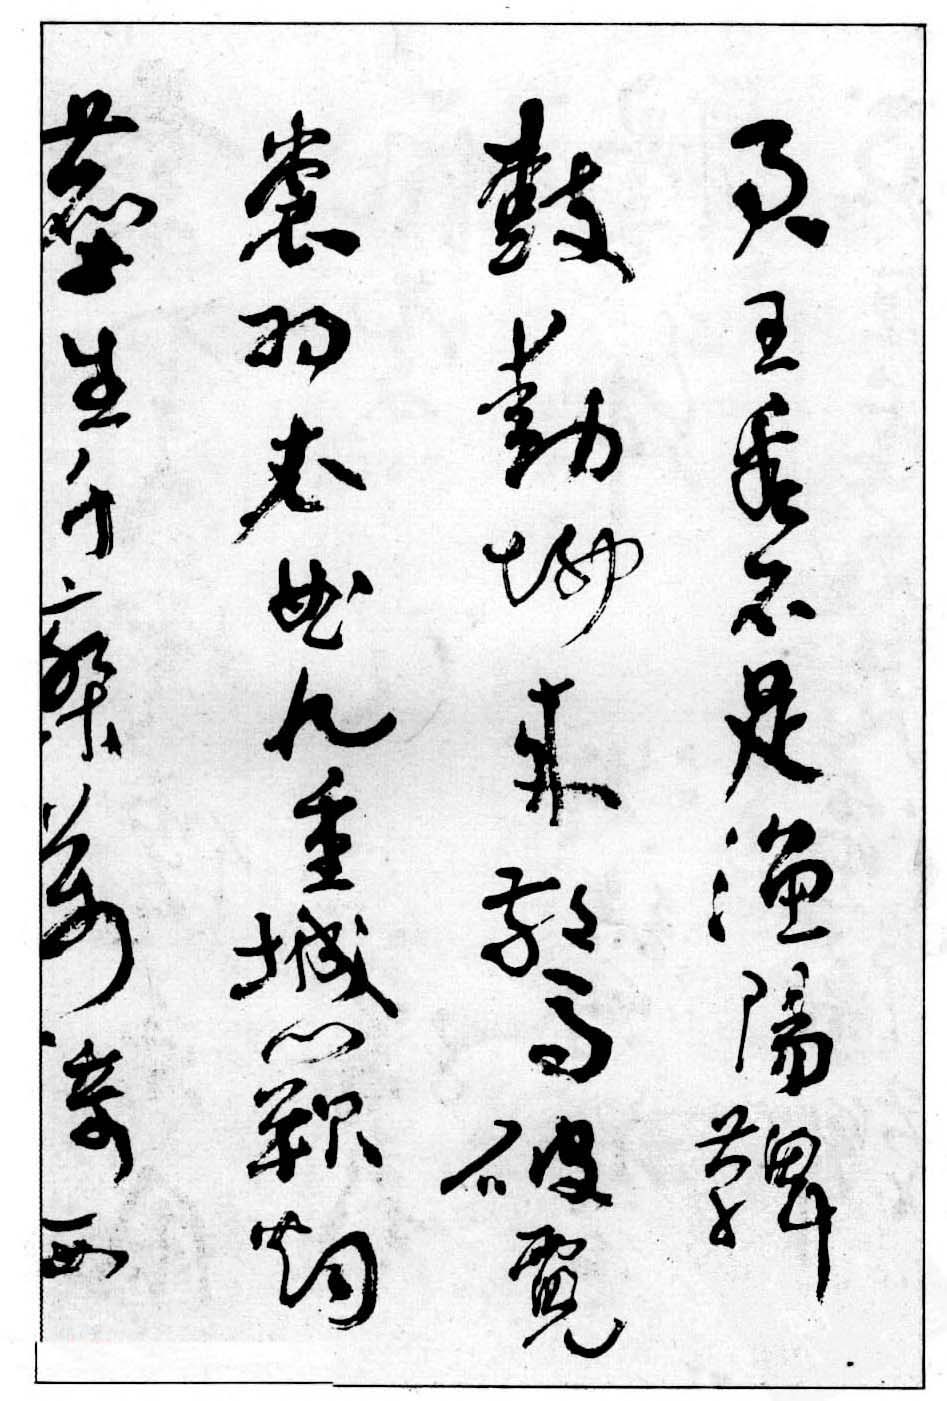 君王看不足漁陽鞞
鼓動地來驚破霓
裳羽衣曲九重城闕煙
塵生千乘萬騎西